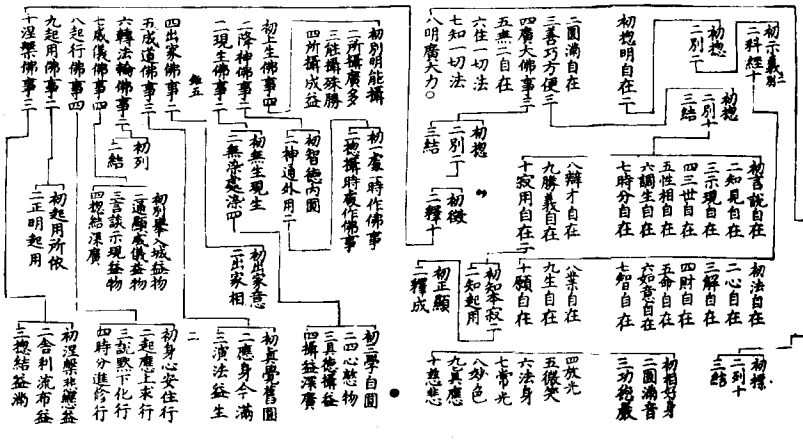 初示義別二
二科經十
初惣
二別二
初惣明自在二
二圓滿自在
三善巧方便三
四廣大佛事三
五無二自在
六住一切法
七知一切法
八明廣大力○
初惣
二別十
三結
初惣
二別二
三結
初言說自在
二知見自在
三示現自在
四三世自在
五性相自在
六調生自在
七時分自在
八辯才自在
九勝義自在
十寂用自在二
初徵
二釋十
初法自在
二心自在
三解自在
四財自在
五命自在
六如意自在
七智自在
八業自在
九生自在
十願自在
初知本寂二
二知起用
初正顯
二釋成
初標
二列十
三結
初相好身
二圓滿音
三功德嚴
四放光
五微笑
六法身
七常光
八妙色
九真應
十慈悲
初別明能攝
二所攝廣多
三能攝殊勝
四所攝成益
初上生佛事四
二降神佛事二
二現生佛事二
四出家佛事二
五成道佛事三
六轉法輪佛事二
七威儀佛事四
八起行佛事四
九起用佛事二
十涅槃佛事三
初一處一時作佛事
二摠攝時處作佛事
初智德內圓
二神通外用二
初無生現生
二無染處染四
初列
二結
初出家意
二出家相
初別舉入城益物
二通顯威儀益物
三言談示現益物
四惣結深廣
初起用所依
二正明起用
初三學自圓
二四心慜物
三具德攝益
四攝益深廣
初真覺舊圓
二應身今滿
三演法益生
二
初身心安住行
二起應上求行
三說默下化行
四時分進修行
初涅槃悲戀益
二舍利流布益
三惣結益滿